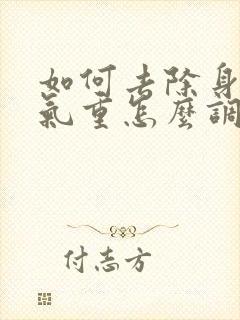 如何去除身
氣重怎麼調
付志方